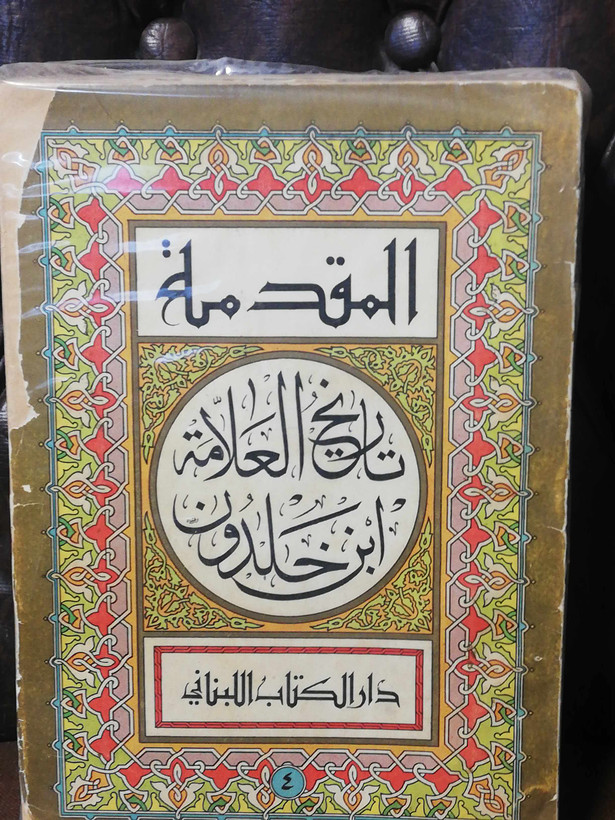 المقدمة
تاريخ العلامة
ابن خلدون
دار الكتاب اللبناني
٤